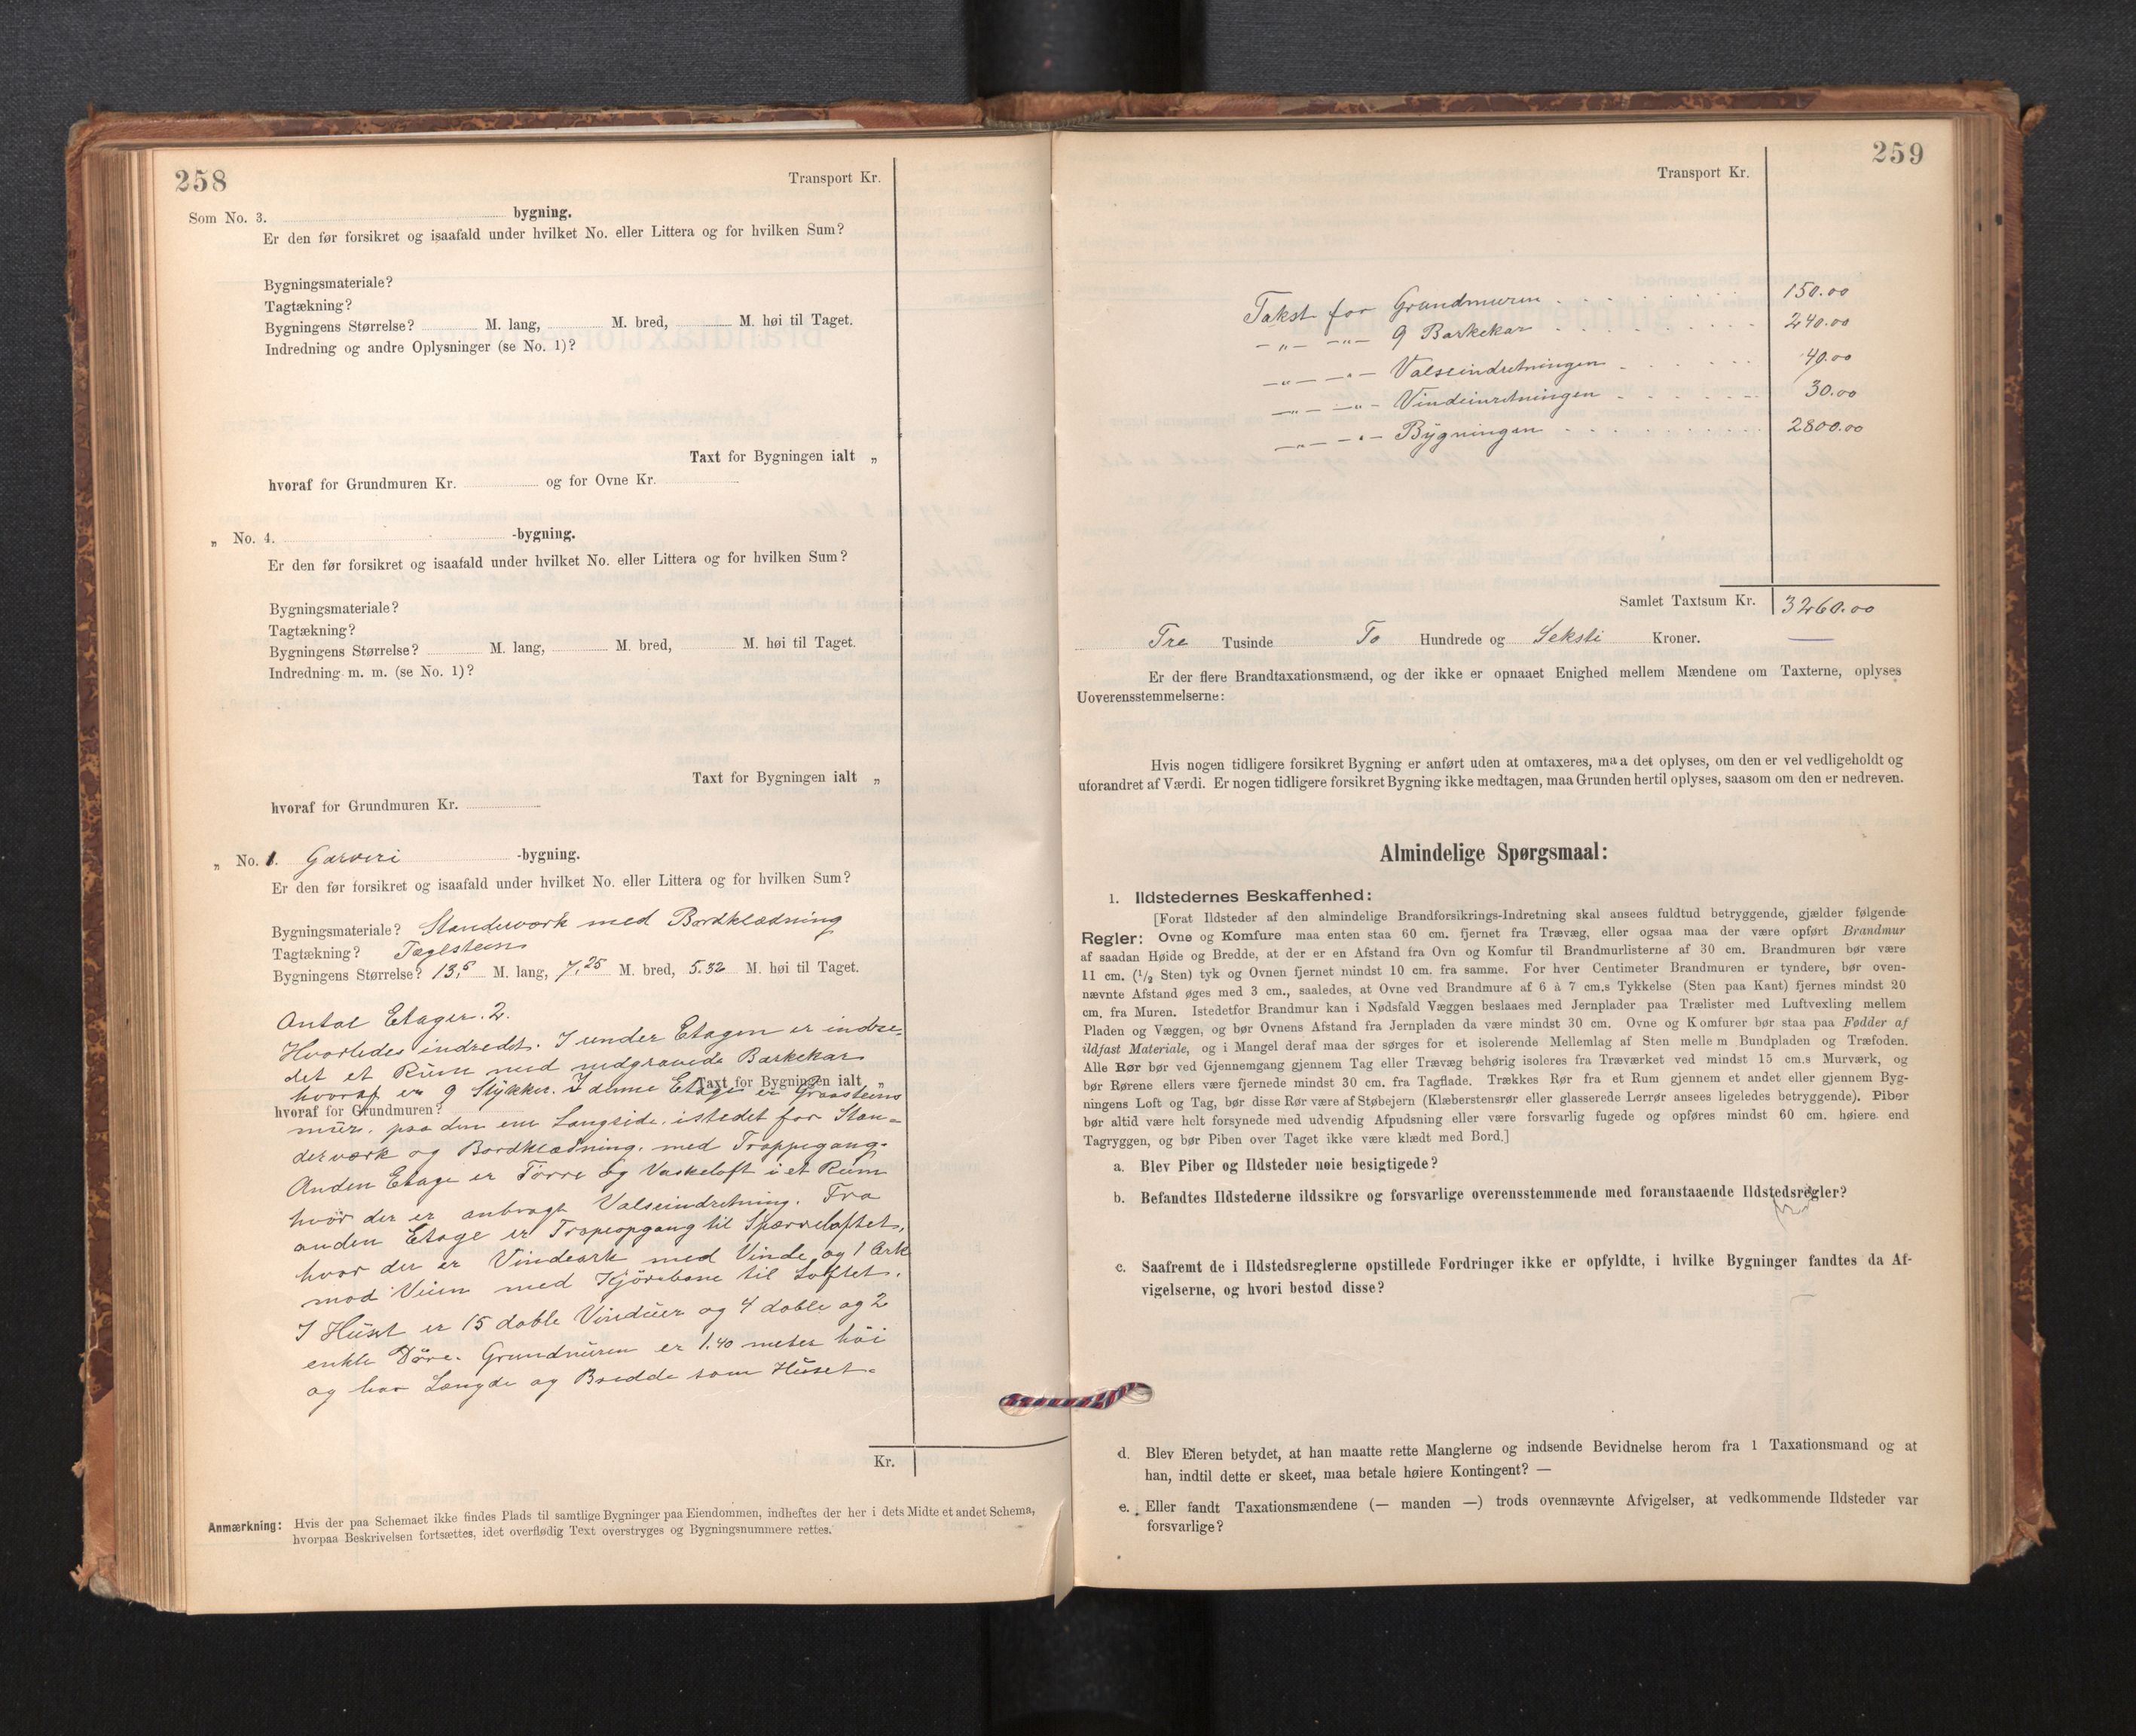 258
Transport Kr.
Som No. 3. bygning.
Er den før forsikret og isaafald under hvilket No. eller Littera og for hvilken Sum?
Bygningsmateriale?
Tagtækning?
Bygningens Størrelse? M. lang, M. bred, M. høi til Taget.
Indredning og andre Oplysninger (se No. 1)?
Taxt for Bygningen ialt „
hvoraf for Grundmuren Kr. og for Ovne Kr.
„ No. 4. -bygning.
Er den før forsikret og isaafald under hvilket No. eller Littera og for hvilken Sum?
Bygningsmateriale?
Tagtækning?
Bygningens Størrelse? M. lang, M. bred, M. høi til Taget.
Indredning m. m. (se No. 1)?
Taxt for Bygningen ialt „
hvoraf for Grundmuren Kr.
„ No. 1. Garveri -bygning.
Er den før forsikret og isaafald under hvilket No. eller Littera og for hvilken Sum?
Bygningsmateriale? Standerværk med Bordklædning
Tagtækning? Taglsteins
Bygningens Størrelse? 13,5 M. lang, 7,25 M. bred, 5.32 M. høi til Taget.
Antal Etager. 2.
Hvorledes indredet. I under Etagen er indre-
det et Rüm med nedgravede Barkekar
hvoraf er 9 Stykker. I denne Etage er Graasteins
Taxt for Bygningen ialt „
hvoraf for Grundmuren?
mür, paa den ene Langside, istedet for Stan-
derværk og Bordklædning, med Trappegang.
Anden Etage er Tørre og Vaskeloft i et Rüm
hvor der er anbragt Valseindretning. Fra
anden Etage er Trapeopgang til Spærreloftet,
hvor der er Vindeark med Vinde og 1 Ark
mod Veien med Kjörebane til Loftet.
I Hüset er 15 doble Vindüer og 4 doble og 2
enkle Döre. Grundmüren er 1.40 meter höi
og har Længde og Bredde som Hüset.
Kr.
Anmærkning: Hvis der paa Schemaet ikke findes Plads til samtlige Bygninger paa Eiendommen, indheftes der her i dets Midte et andet Schema,
hvorpaa Beskrivelsen fortsættes, idet overflødig Text overstryges og Bygningsnummere rettes.
259
Transport Kr.
Takst for Grundmuren 150.00
-„- -„- 9 Barkekar 240.00
-„- -„- Valseindretningen 40.00
-„- -„- Vindeinretningen 30.00
-„- -„- Bygningen 2800.00
Samlet Taxtsum Kr. 3260.00
Tre Tusinde To Hundrede og Seksti Kroner.
Er der flere Brandtaxationsmænd, og der ikke er opnaaet Enighed mellem Mændene om Taxterne, oplyses
Uoverensstemmelserne:
Hvis nogen tidligere forsikret Bygning er anført uden at omtaxeres, maa det oplyses, om den er vel vedligeholdt og
uforandret af Værdi. Er nogen tidligere forsikret Bygning ikke medtagen, maa Grunden hertil oplyses, saasom om den er nedreven.
Almindelige Spørgsmaal:
1. Ildstedernes Beskaffenhed:
[Forat Ildsteder af den almindelige Brandforsikrings-Indretning skal ansees fuldtud betryggende, gjælder følgende
Regler: Ovne og Komfure maa enten staa 60 cm. fjernet fra Trævæg, eller ogsaa maa der være opført Brandmur
af saadan Høide og Bredde, at der er en Afstand fra Ovn og Komfur til Brandmurlisterne af 30 cm. Brandmuren bør være
11 cm. (1/2 Sten) tyk og Ovnen fjernet mindst 10 cm. fra samme. For hver Centimeter Brandmuren er tyndere, bør oven-
nævnte Afstand øges med 3 cm., saaledes, at Ovne ved Brandmure af 6 à 7 cm.s Tykkelse (Sten paa Kant) fjernes mindst 20
cm. fra Muren. Istedetfor Brandmur kan i Nødsfald Væggen beslaaes med Jernplader paa Trælister med Luftvexling mellem
Pladen og Væggen, og bør Ovnens Afstand fra Jernpladen da være mindst 30 cm. Ovne og Komfurer bør staa paa Fødder af
ildfast Materiale, og i Mangel deraf maa der sørges for et isolerende Mellemlag af Sten mellem Bundpladen og Træfoden.
Alle Rør bør ved Gjennemgang gjennem Tag eller Trævæg behørig isoleres fra Træværket ved mindst 15 cm.s Murværk, og
bør Rørene ellers være fjernede mindst 30 cm. fra Tagflade. Trækkes Rør fra et Rum gjennem et andet eller gjennem Byg-
ningens Loft og Tag, bør disse Rør være af Støbejern (Klæberstensrør eller glasserede Lerrør ansees ligeledes betryggende). Piber
bør altid være helt forsynede med udvendig Afpudsning eller være forsvarlig fugede og opføres mindst 60 cm. høiere end
Tagryggen, og bør Piben over Taget ikke være klædt med Bord.]
a. Blev Piber og Ildsteder nøie besigtigede?
b. Befandtes Ildstederne ildssikre og forsvarlige overensstemmende med foranstaaende Ildstedsregler?
c. Saafremt de i Ildstedsreglerne opstillede Fordringer ikke er opfyldte, i hvilke Bygninger fandtes da Af-
vigelserne, og hvori bestod disse?
d. Blev Eieren betydet, at han maatte rette Manglerne og indsende Bevidnelse herom fra 1 Taxationsmand og at
han, indtil dette er skeet, maa betale høiere Kontingent? —
e. Eller fandt Taxationsmændene (— manden —) trods ovennævnte Afvigelser, at vedkommende Ildsteder var
forsvarlige?